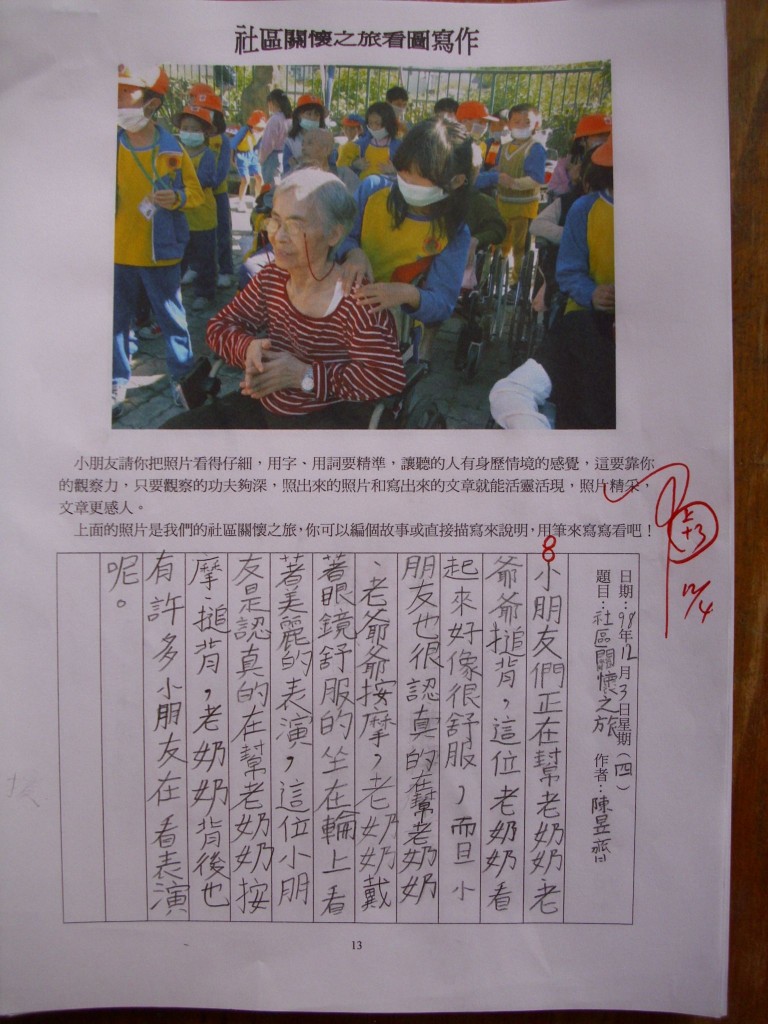 社區關懷之旅看圖寫作
小朋友請你把照片看得仔細，用字、用詞要精準，讓聽的人有身歷情境的感覺，這要靠你
的觀察力，只要觀察的功夫夠深，照出來的照片和寫出來的文章就能活靈活現，照片精采，
文章更感人。
上面的照片是我們的社區關懷之旅，你可以編個故事或直接描寫來說明，用筆來寫寫看吧！
日期：98年12月3日星期（四）
題目：社區關懷之旅 作者：陳昱齊
小朋友們正在幫老奶奶老
爺爺搥背，這位老奶奶看
起來好像很舒服，而且小
朋友也很認真的在幫老奶奶
、老爺爺按摩，老奶奶戴
著眼鏡舒服的坐在輪上看
著美麗的表演，這位小朋
友是認真的在幫老奶奶按
摩、搥背，老奶奶背後也
有許多小朋友在看表演
呢。
8
上
+3
12/4
13